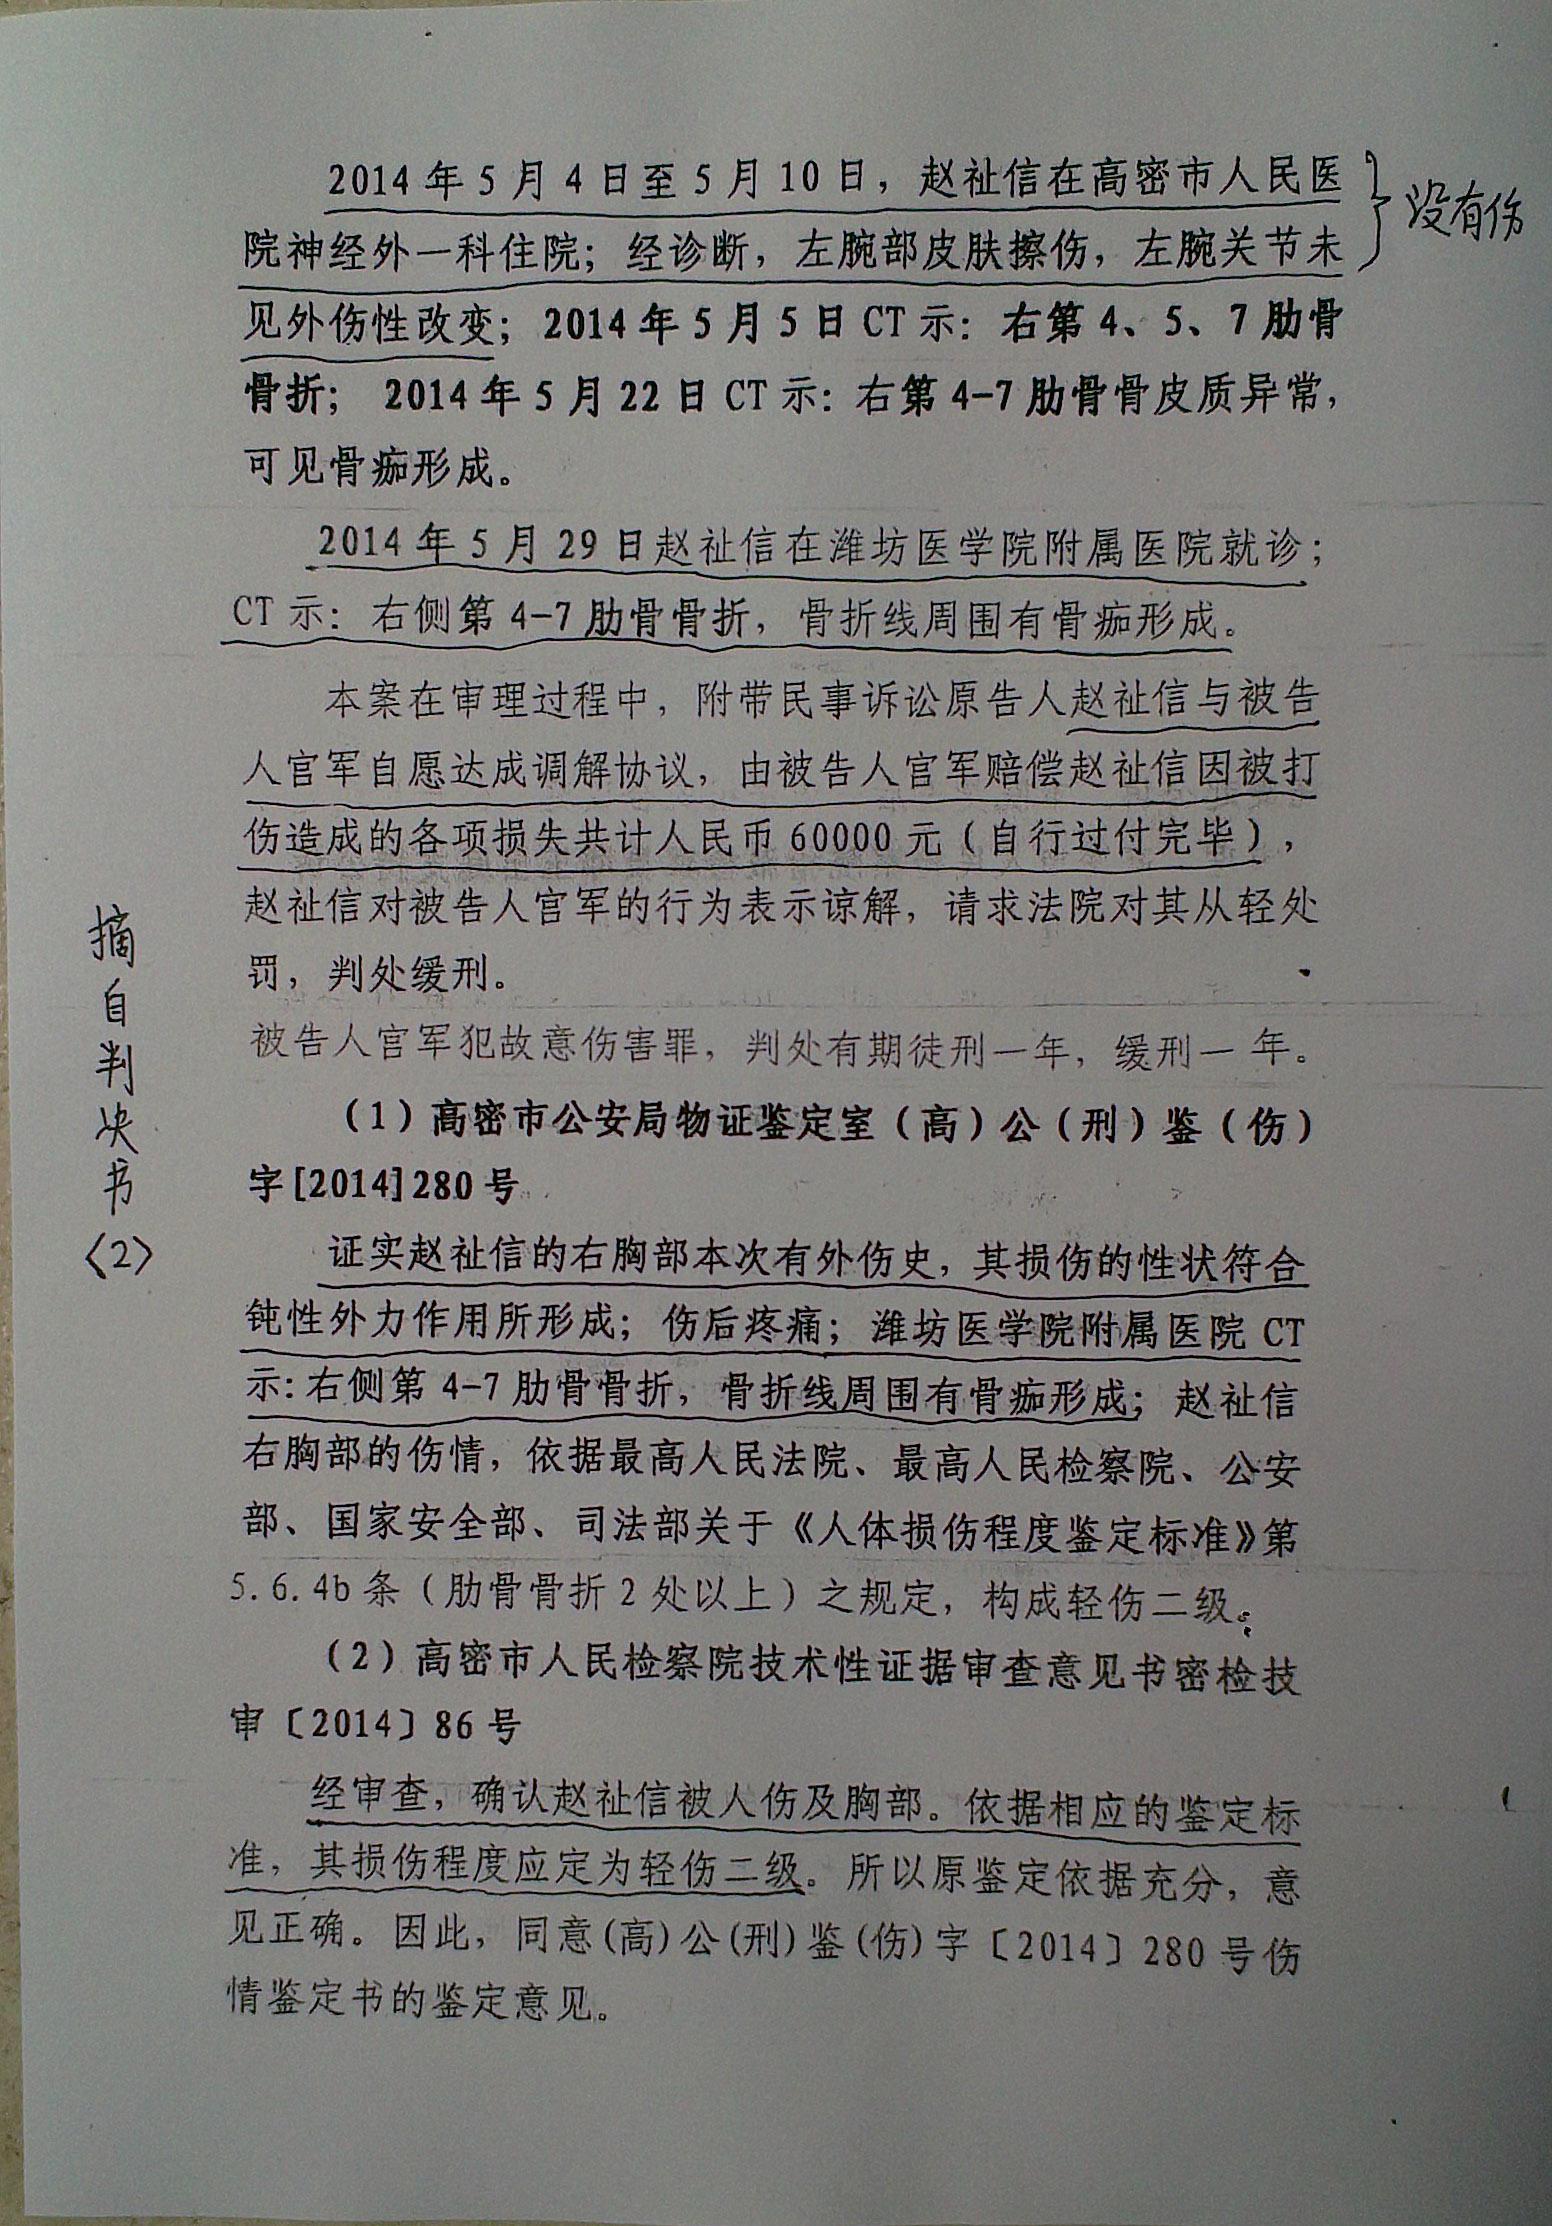 2014年5月4日至5月10日，赵祉信在高密市人民医
院神经外一科住院；经诊断，左腕部皮肤擦伤，左腕关节未
见外伤性改变；2014年5月5日CT示：右第4、5、7肋骨
骨折；2014年5月22日CT示：右第4-7肋骨骨皮质异常，
可见骨痂形成。
没有伤
2014年5月29日赵祉信在潍坊医学院附属医院就诊；
CT示：右侧第4-7肋骨骨折，骨折线周围有骨痂形成。
本案在审理过程中，附带民事诉讼原告人赵祉信与被告
人官军自愿达成调解协议，由被告人官军赔偿赵祉信因被打
伤造成的各项损失共计人民币60000元（自行过付完毕），
赵祉信对被告人官军的行为表示谅解，请求法院对其从轻处
罚，判处缓刑。
被告人官军犯故意伤害罪，判处有期徒刑一年，缓刑一年。
（1）高密市公安局物证鉴定室（高）公（刑）鉴（伤）
字[2014]280号
证实赵祉信的右胸部本次有外伤史，其损伤的性状符合
钝性外力作用所形成；伤后疼痛；潍坊医学院附属医院CT
示：右侧第4-7肋骨骨折，骨折线周围有骨痂形成；赵祉信
右胸部的伤情，依据最高人民法院、最高人民检察院、公安
部、国家安全部、司法部关于《人体损伤程度鉴定标准》第
5.6.4b条（肋骨骨折2处以上）之规定，构成轻伤二级。
（2）高密市人民检察院技术性证据审查意见书密检技
审〔2014〕86号
经审查，确认赵祉信被人伤及胸部。依据相应的鉴定标
准，其损伤程度应定为轻伤二级。所以原鉴定依据充分，意
见正确。因此，同意(高)公(刑)鉴(伤)字〔2014〕280号伤
情鉴定书的鉴定意见。
摘自判决书〈2〉